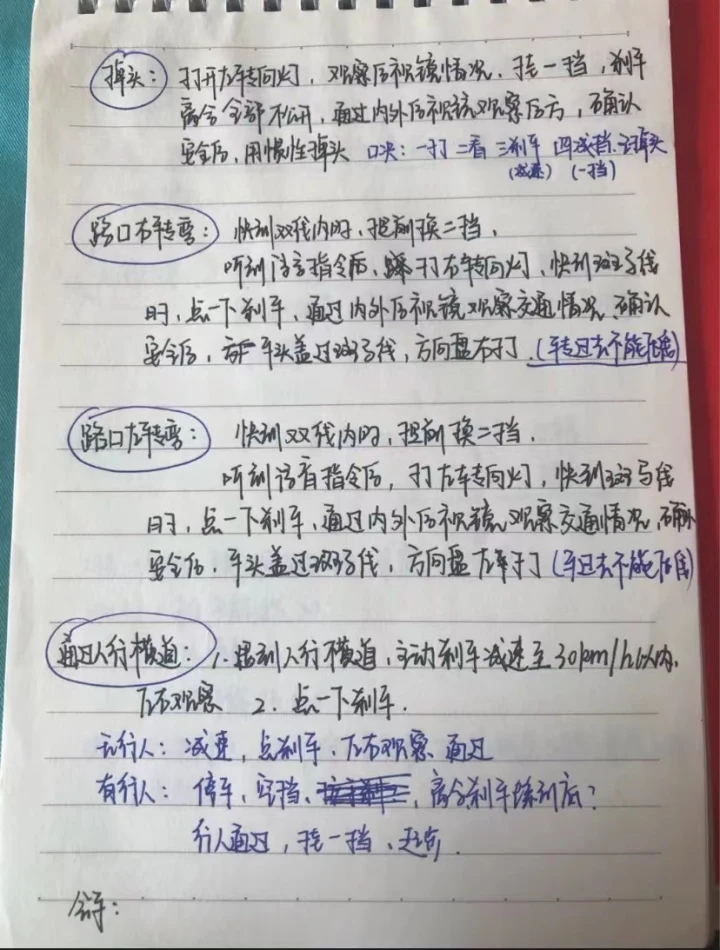 掉头：打开左转向灯，观察后视镜情况，挂一挡，刹车
离合全部不松开，通过内外后视镜观察后方，确认
安全后，用惯性掉头 口决：一打 二看 三刹车 四减挡 五掉头
(减速) (一挡)
路口右转弯：快到双线内时，提前换二挡，
听到语音指令后，打右转向灯，快到斑马线
时，点一下刹车，通过内外后视镜观察交通情况，确认
安全后，车头盖过斑马线，方向盘右打，(转过去不能压线)
路口左转弯：快到双线内时，提前换二挡，
听到语音指令后，打左转向灯，快到斑马线
时，点一下刹车，通过内外后视镜观察交通情况，确认
安全后，车头盖过斑马线，方向盘左打(过去不能压线)
通过人行横道：1.遇到人行横道，主动刹车减速至30km/h以内，
左右观察 2.点一下刹车.
无行人：减速，点刹车，左右观察 通过
有行人：停车，空挡、离合刹车踩到底？
行人通过，挂一挡、起步.
会车：